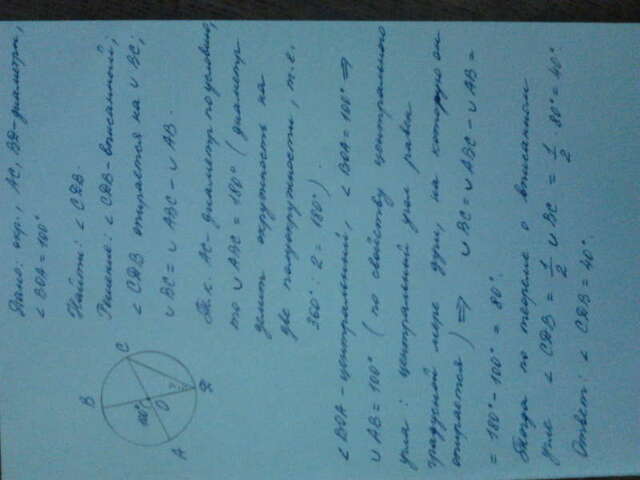 Дано: окр., AC, BD-диаметры,
∠BOA = 100°
Найти: ∠CDB.
Решение: ∠CDB - вписанный;
∠CDB опирается на ∪BC;
∪BC = ∪ABC - ∪AB.
Т.к. AC - диаметр по условию,
то ∪ABC = 180° (диаметр
делит окружность на
две полуокружности, т.е.
360° : 2 = 180°).
∠BOA - центральный, ∠BOA = 100° ⇒
∪AB = 100° (по свойству центрального
угла: центральный угол равен
градусной мере дуги, на которую он
опирается) ⇒ ∪BC = ∪ABC - ∪AB =
= 180° - 100° = 80°.
Тогда по теореме о вписанном
угле ∠CDB = 1/2 ∪BC = 1/2 · 80° = 40°.
Ответ: ∠CDB = 40°.
B
C
100°
O
?
A
D